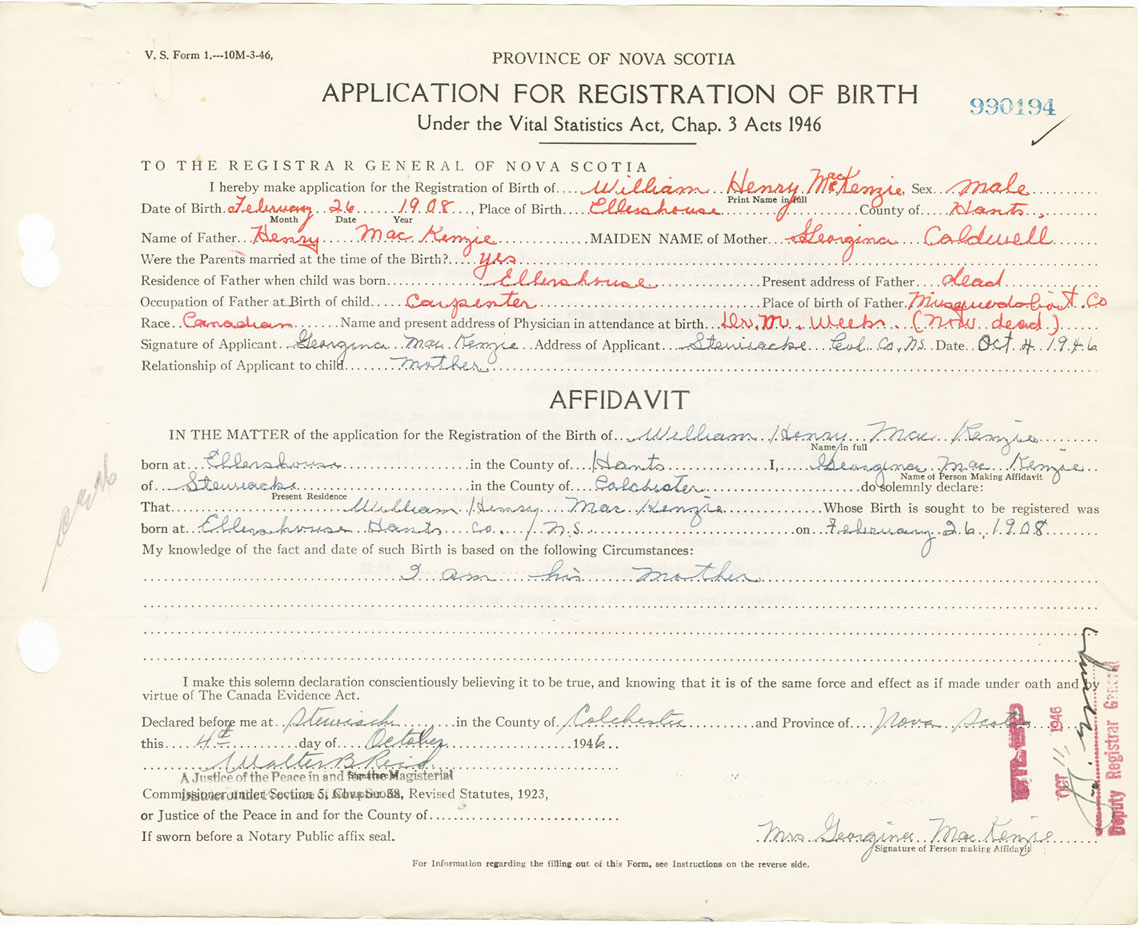 V. S. Form 1.---10M-3-46,
PROVINCE OF NOVA SCOTIA
APPLICATION FOR REGISTRATION OF BIRTH
990194
Under the Vital Statistics Act, Chap. 3 Acts 1946
TO THE REGISTRAR GENERAL OF NOVA SCOTIA
I hereby make application for the Registration of Birth of William Henry MacKenzie, Sex male
Print Name in full
Date of Birth February 26 1908, Place of Birth Ellershouse County of Hants.
Month Date Year
Name of Father Henry MacKenzie MAIDEN NAME of Mother Georgina Caldwell
Were the Parents married at the time of the Birth? yes
Residence of Father when child was born Ellershouse Present address of Father dead
Occupation of Father at Birth of child Carpenter Place of birth of Father Musquodoboit Co
Race Canadian Name and present address of Physician in attendance at birth Dr. M. Weeks (Now dead)
Signature of Applicant Georgina MacKenzie Address of Applicant Stewiacke Col. Co, N.S. Date Oct 4 1946
Relationship of Applicant to child Mother
AFFIDAVIT
IN THE MATTER of the application for the Registration of the Birth of William Henry MacKenzie
Name in full
born at Ellershouse in the County of Hants I, Georgina MacKenzie
Name of Person Making Affidavit
of Stewiacke in the County of Colchester do solemnly declare:
Present Residence
That William Henry MacKenzie Whose Birth is sought to be registered was
born at Ellershouse Hants Co. N.S. on February 26, 1908
My knowledge of the fact and date of such Birth is based on the following Circumstances:
I am his Mother
I make this solemn declaration conscientiously believing it to be true, and knowing that it is of the same force and effect as if made under oath and by
virtue of The Canada Evidence Act.
Declared before me at Stewiacke in the County of Colchester and Province of Nova Scotia
this 4th day of October 1946
Walter B Reid
Signature
A Justice of the Peace in and for the Magisterial
Commissioner under Section 5, Chapter 38, Revised Statutes, 1923,
or Justice of the Peace in and for the County of
If sworn before a Notary Public affix seal.
Mrs Georgina MacKenzie
Signature of Person making Affidavit
For Information regarding the filling out of this Form, see Instructions on the reverse side.
OCT 11 1946
Deputy Registrar General